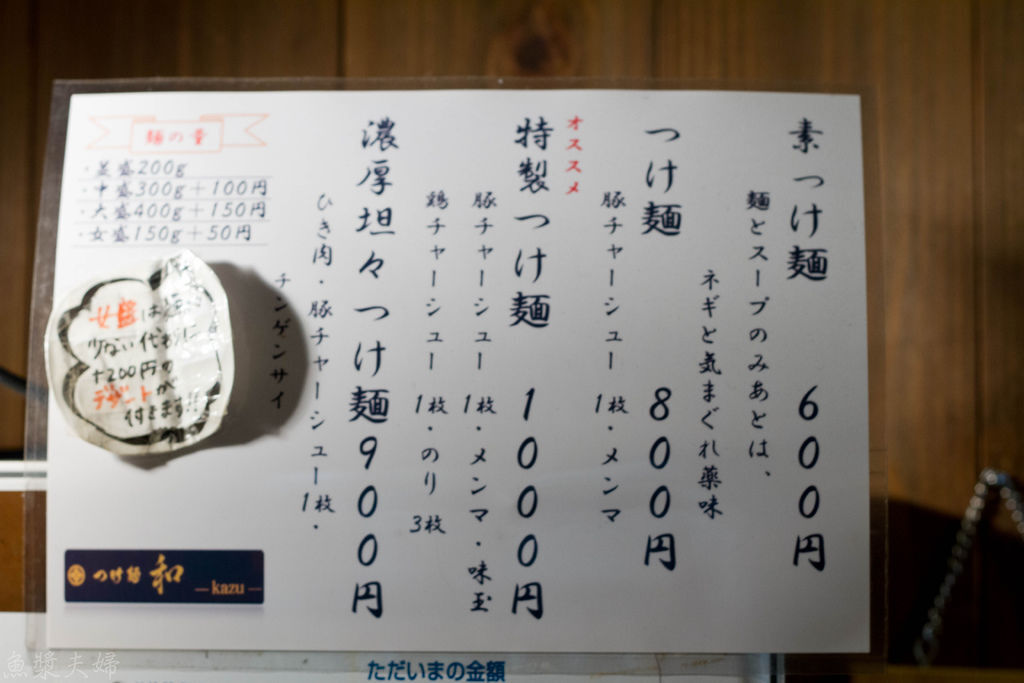 素つけ麺 600円
麺とスープのみあとは、
ネギと気まぐれ薬味
つけ麺 800円
豚チャーシュー 1枚・メンマ
オススメ
特製つけ麺 1000円
豚チャーシュー 1枚・メンマ・味玉
鶏チャーシュー 1枚・のり 3枚
濃厚坦々つけ麺 900円
ひき肉・豚チャーシュー 1枚・
チンゲンサイ
麺の量
・並盛200g
・中盛300g+100円
・大盛400g+150円
・女盛150g+50円
女盛は
少ない代わりに
+200円の
デザートが
付きます!!
つけ麺 和 ―kazu―
ただいまの金額
魚漿夫婦